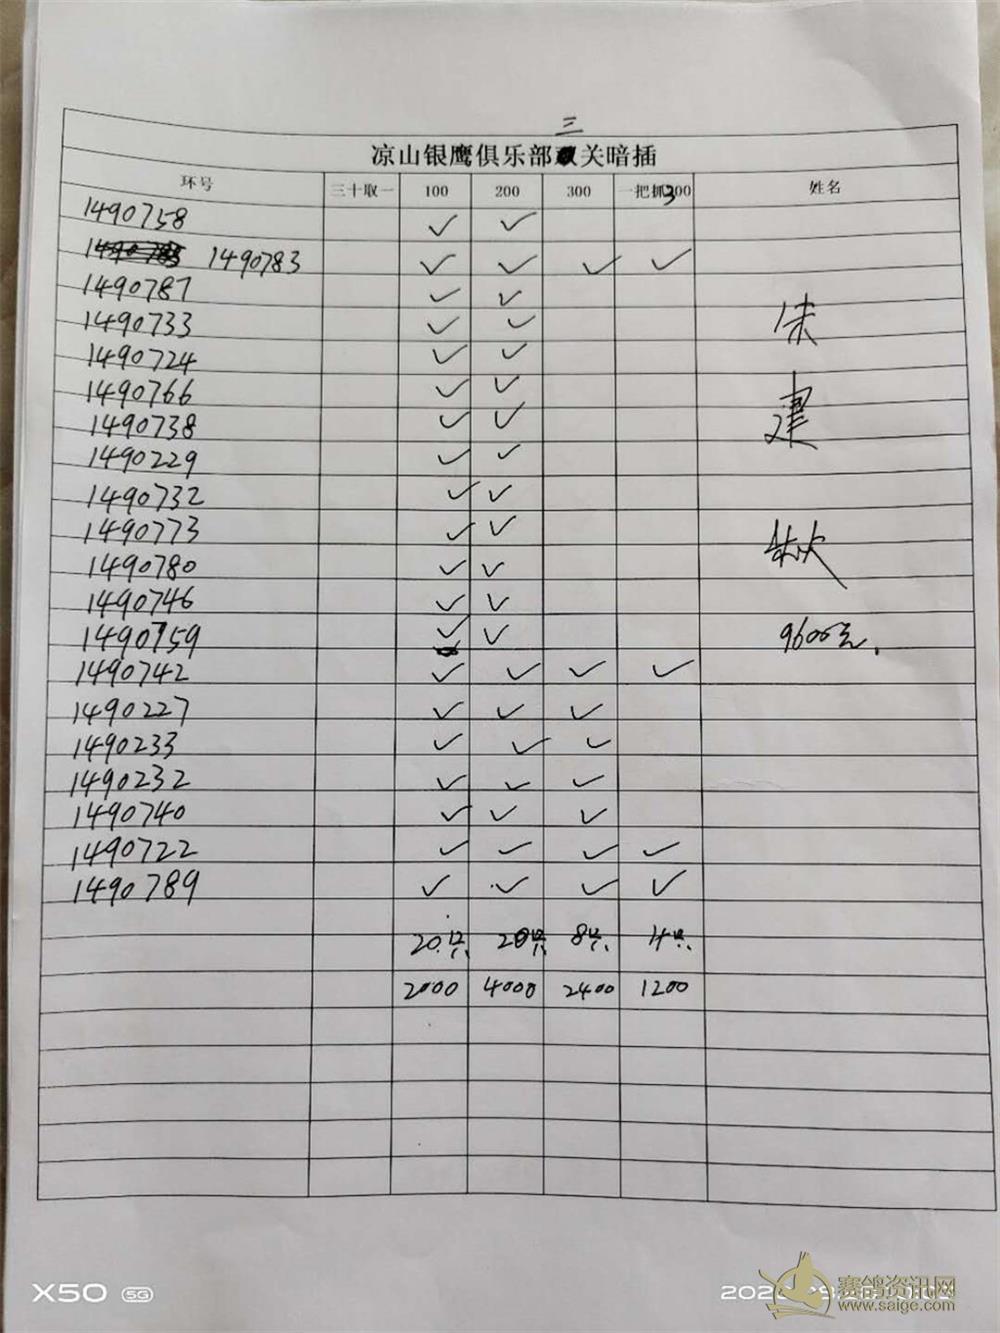 三
凉山银鹰俱乐部关暗插
环号 三十取一 100 200 300 一把抓300 姓名
1490758 ✓ ✓
1490783 ✓ ✓ ✓ ✓
1490787 ✓ ✓
1490733 ✓ ✓
1490724 ✓ ✓
1490766 ✓ ✓
1490738 ✓ ✓
1490229 ✓ ✓
1490732 ✓ ✓
1490773 ✓ ✓
1490780 ✓ ✓
1490746 ✓ ✓
1490759 ✓ ✓
1490742 ✓ ✓ ✓ ✓
1490227 ✓ ✓ ✓
1490233 ✓ ✓ ✓
1490232 ✓ ✓ ✓
1490740 ✓ ✓ ✓
1490722 ✓ ✓ ✓ ✓
1490789 ✓ ✓ ✓ ✓
20只. 20只. 8只. 4只.
2000 4000 2400 1200
建
秋
9600元.
X50 5G
赛鸽资讯网
www.saige.com